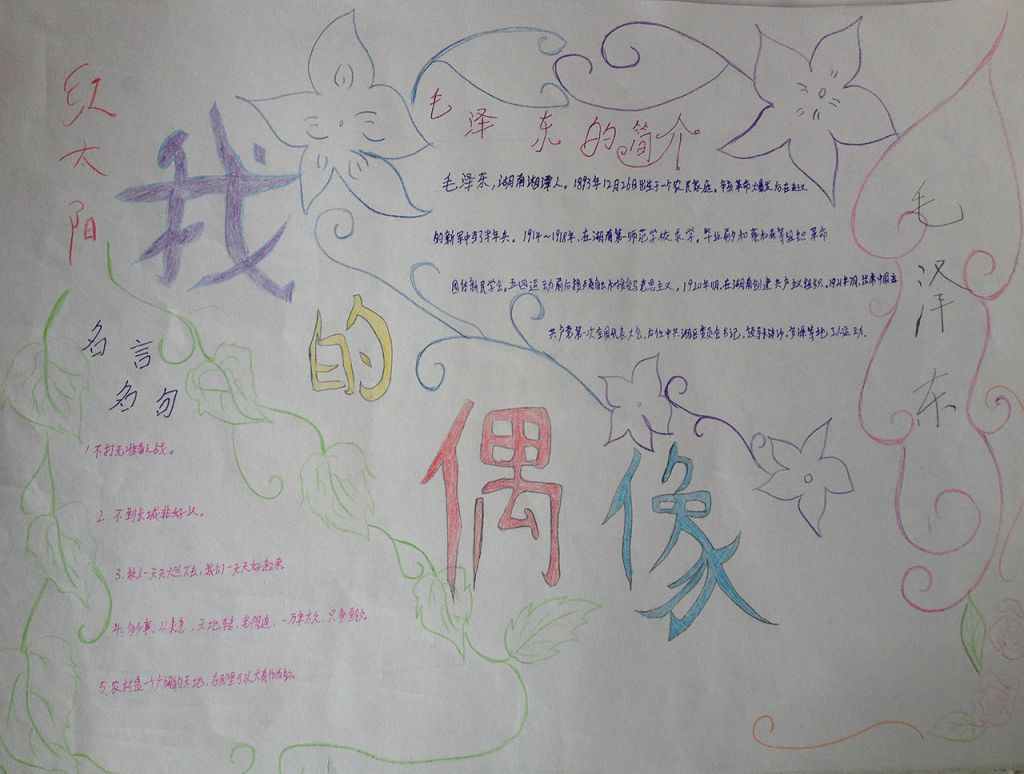 红太阳
我的偶像
毛泽东的简介
毛泽东,湖南湘潭人。1893年12月26日出生于一个农民家庭。辛亥革命爆发后在起义
的新军中当了半年兵。1914~1918年,在湖南第一师范学校求学。毕业前夕和蔡和森等组织革命
团体新民学会。五四运动前后接触和接受马克思主义,1920年11月,在湖南创建共产主义组织。1921年7月,出席中国
共产党第一次全国代表大会,后任中共湖区委员会书记,领导长沙、安源等地工人运动。
毛泽东
名言
名句
1不打无准备之战。
2.不到长城非好汉。
3.敌人一天天烂下去,我们一天天好起来
4.多少事,从来急,天地转,光阴迫,一万年太久,只争朝夕。
5.农村是一个广阔的天地,在那里可以大有作为的。